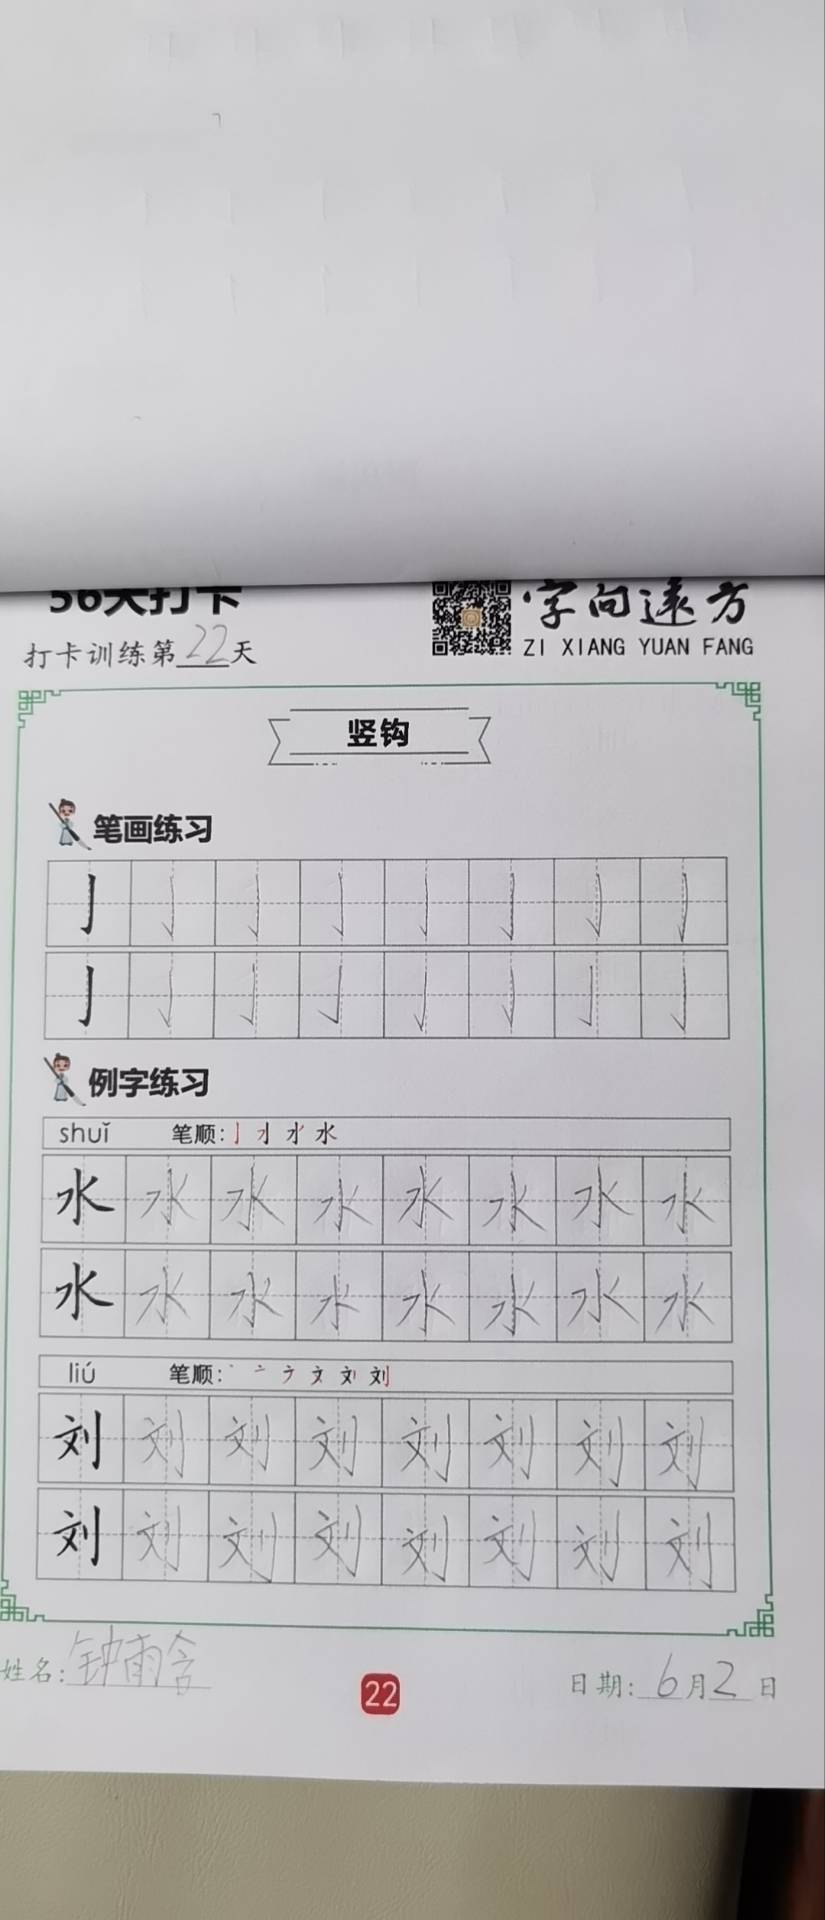 56天打卡
字向远方
打卡训练第22天
ZI XIANG YUAN FANG
竖钩
笔画练习
亅亅亅亅亅亅亅亅
亅亅亅亅亅亅亅亅
例字练习
shuǐ 笔顺:
水水水水水水水水
水水水水水水水水
liú 笔顺:
刘刘刘刘刘刘刘刘
刘刘刘刘刘刘刘刘
姓名:钟雨含
22
日期:6月2日